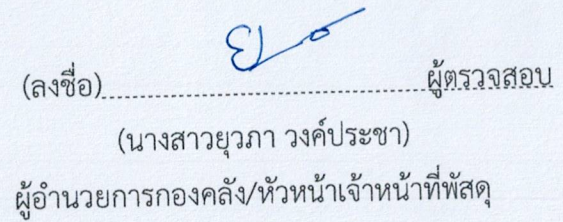 (ลงชื่อ)........................................ผู้ตรวจสอบ
(นางสาวยุวภา วงค์ประชา)
ผู้อำนวยการกองคลัง/หัวหน้าเจ้าหน้าที่พัสดุ